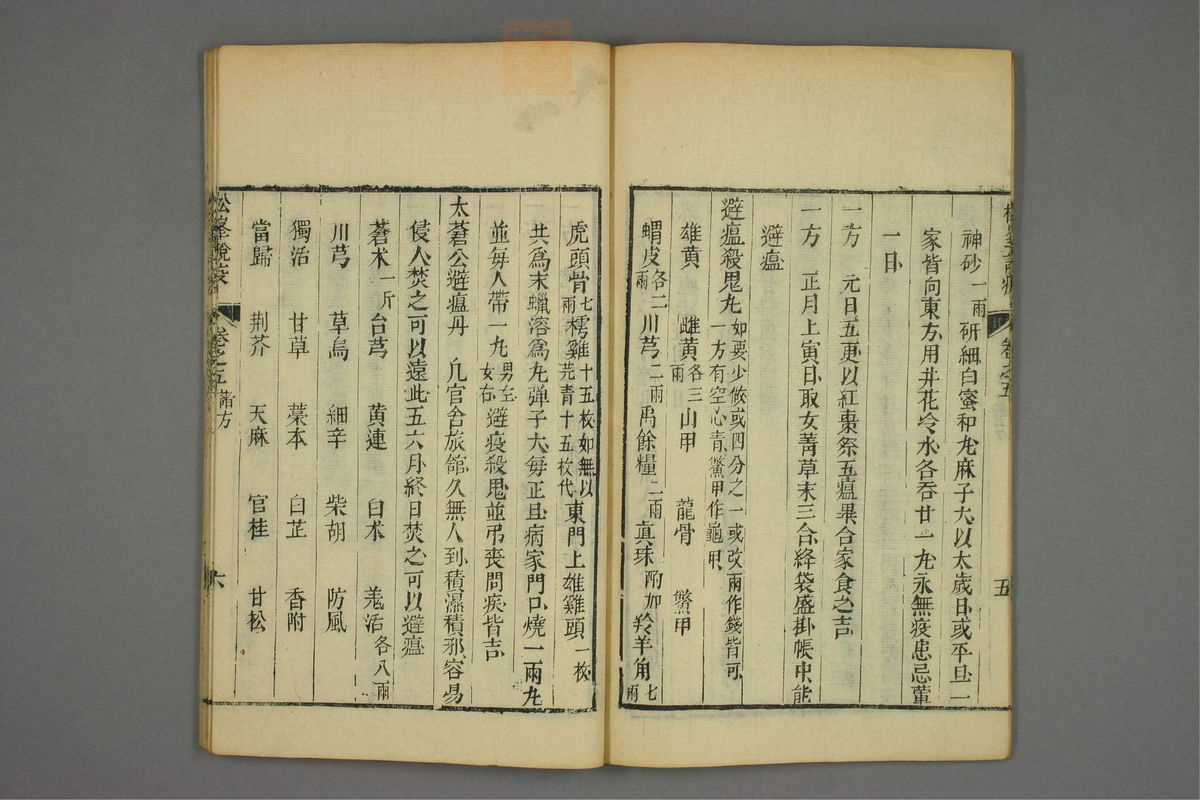 神砂一兩研細白蜜和丸麻子大以太歲日或平旦一
家皆向東方用井花冷水各吞廿一丸永無疫患忌葷
一日
一方 元日五更以紅棗祭五瘟畢合家食之吉
一方 正月上寅日取女菁草末三合絳袋盛掛帳中能
避瘟
避瘟殺鬼丸 如要少做或四分之一或改兩作錢皆可
一方有空心青鱉甲作龜甲
雄黃 雌黃各三兩 山甲 龍骨 鱉甲
蝟皮各二兩 川芎二兩 禹餘糧二兩 真珠酌加 羚羊角七兩
五
虎頭骨七兩 樗雞十五枚如無以芫青十五枚代 東門上雄雞頭一枚
共為末蠟溶為丸彈子大每正旦病家門口燒一兩丸
並每人帶一丸男左女右避疫殺鬼並弔喪問疾皆吉
太蒼公避瘟丹 凡官舍旅館久無人到積濕積邪容易
侵人焚之可以遠此五六月終日焚之可以避瘟
蒼朮一斤 台芎 黃連 白朮 羌活各八兩
川芎 草烏 細辛 柴胡 防風
獨活 甘草 藁本 白芷 香附
當歸 荆芥 天麻 官桂 甘松
松峯說疫 卷之五 諸方 六